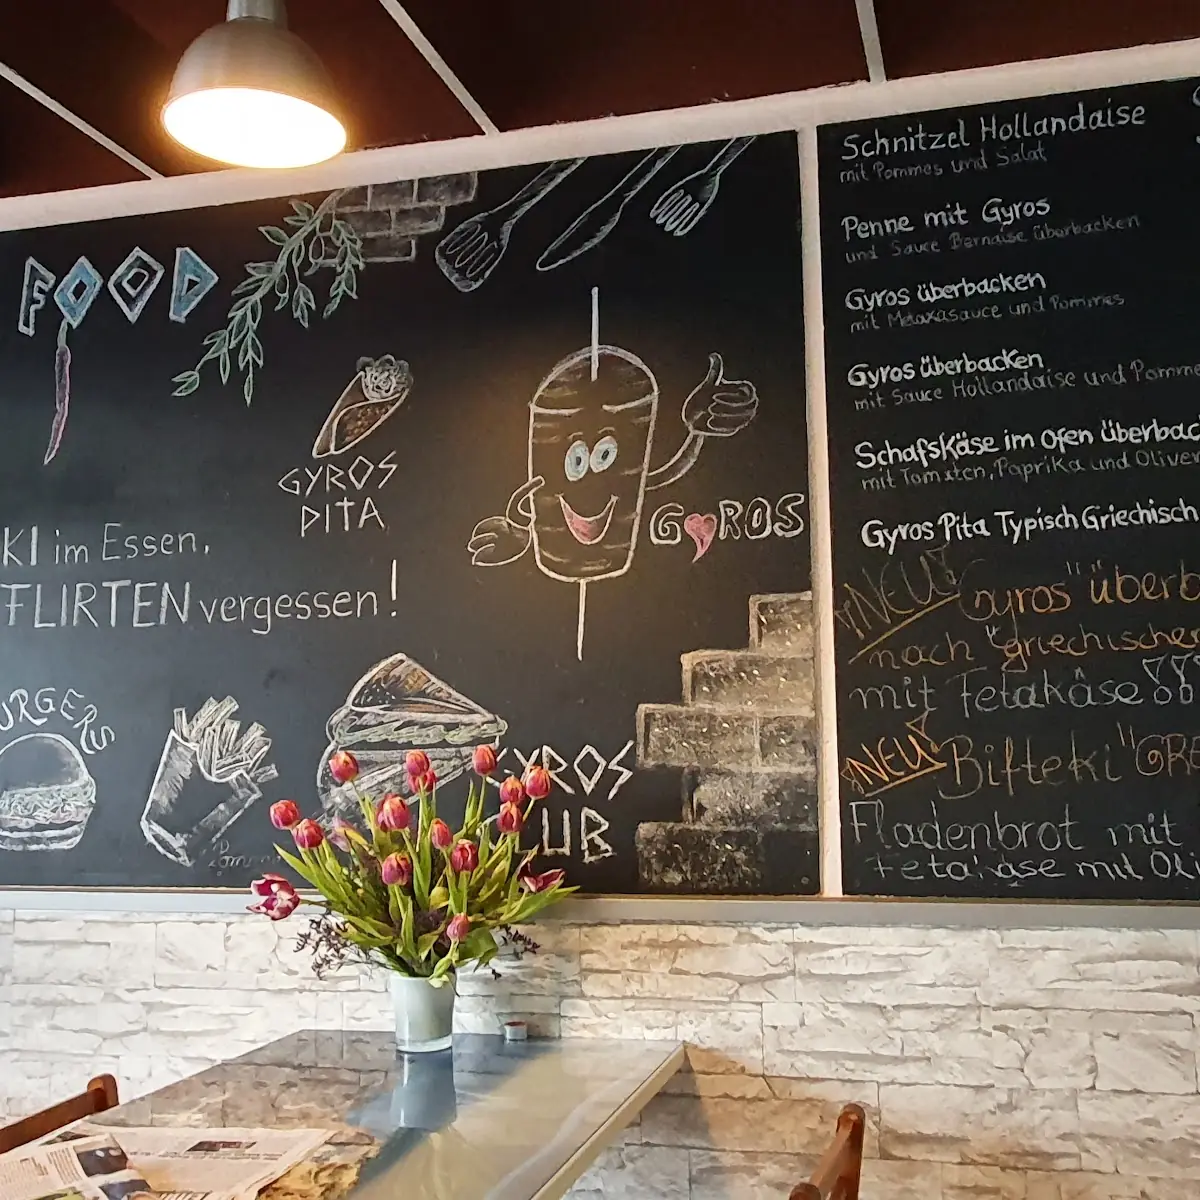 FOOD
GYROS
PITA
KI im Essen,
FLIRTEN vergessen!
GYROS
URGERS
GYROS
LUB
Schnitzel Hollandaise
mit Pommes und Salat
Penne mit Gyros
und Sauce Bernaise überbacken
Gyros überbacken
mit Metaxasauce und Pommes
Gyros überbacken
mit Sauce Hollandaise und Pomme
Schafskäse im Ofen überbac
mit Tomaten, Paprika und Oliven
Gyros Pita Typisch Griechisch
NEU Gyros "überb
nach "griechische
mit Fetakäse
NEU Bifteki "GR
Fladenbrot mit
Fetakäse mit Oli